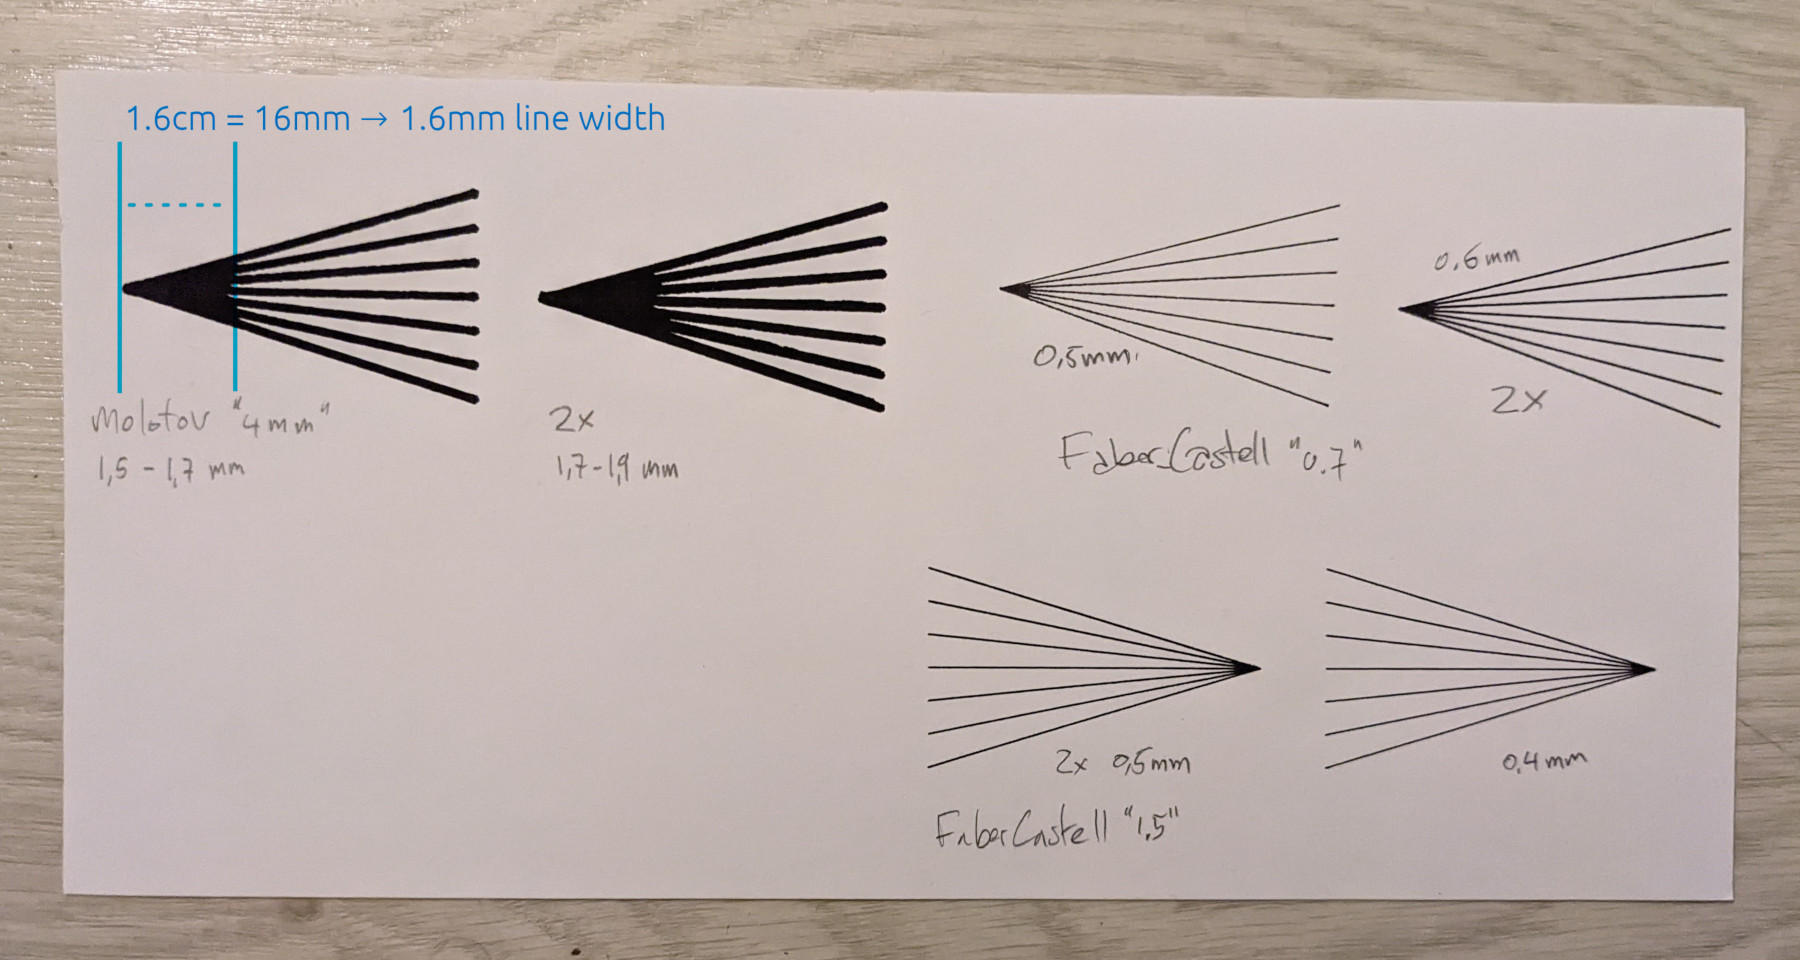 1.6cm = 16mm → 1.6mm line width
Molotov "4mm"
1,5 - 1,7 mm
2x
1,7-1,9 mm
0,5mm
Faber-Castell "0.7"
0,6mm
2x
2x 0,5mm
FaberCastell "1,5"
0,4mm